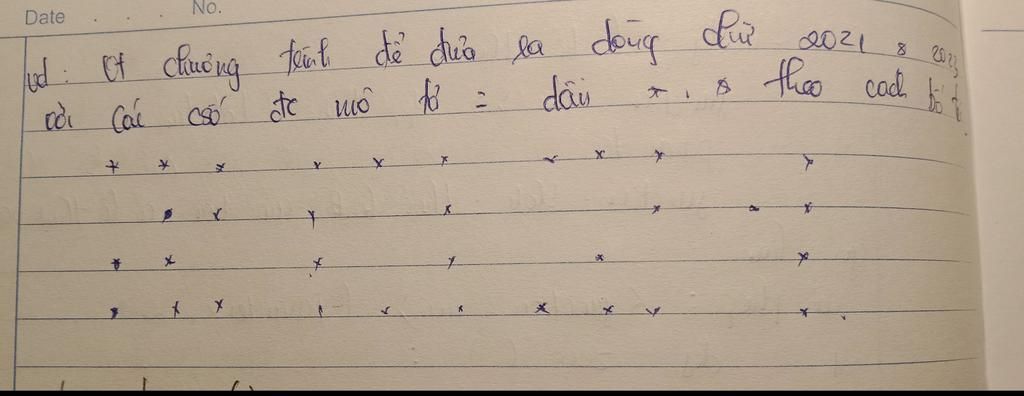 Date . . . No.
vd : Ct chương trình để đưa ra dòng chữ 2021 & 2023
với các csố đc mô tả = dấu * , & theo cách bố t
* * * * * * * * * *
* * * * * * *
* * * * * *
* * * * * * * * * * .